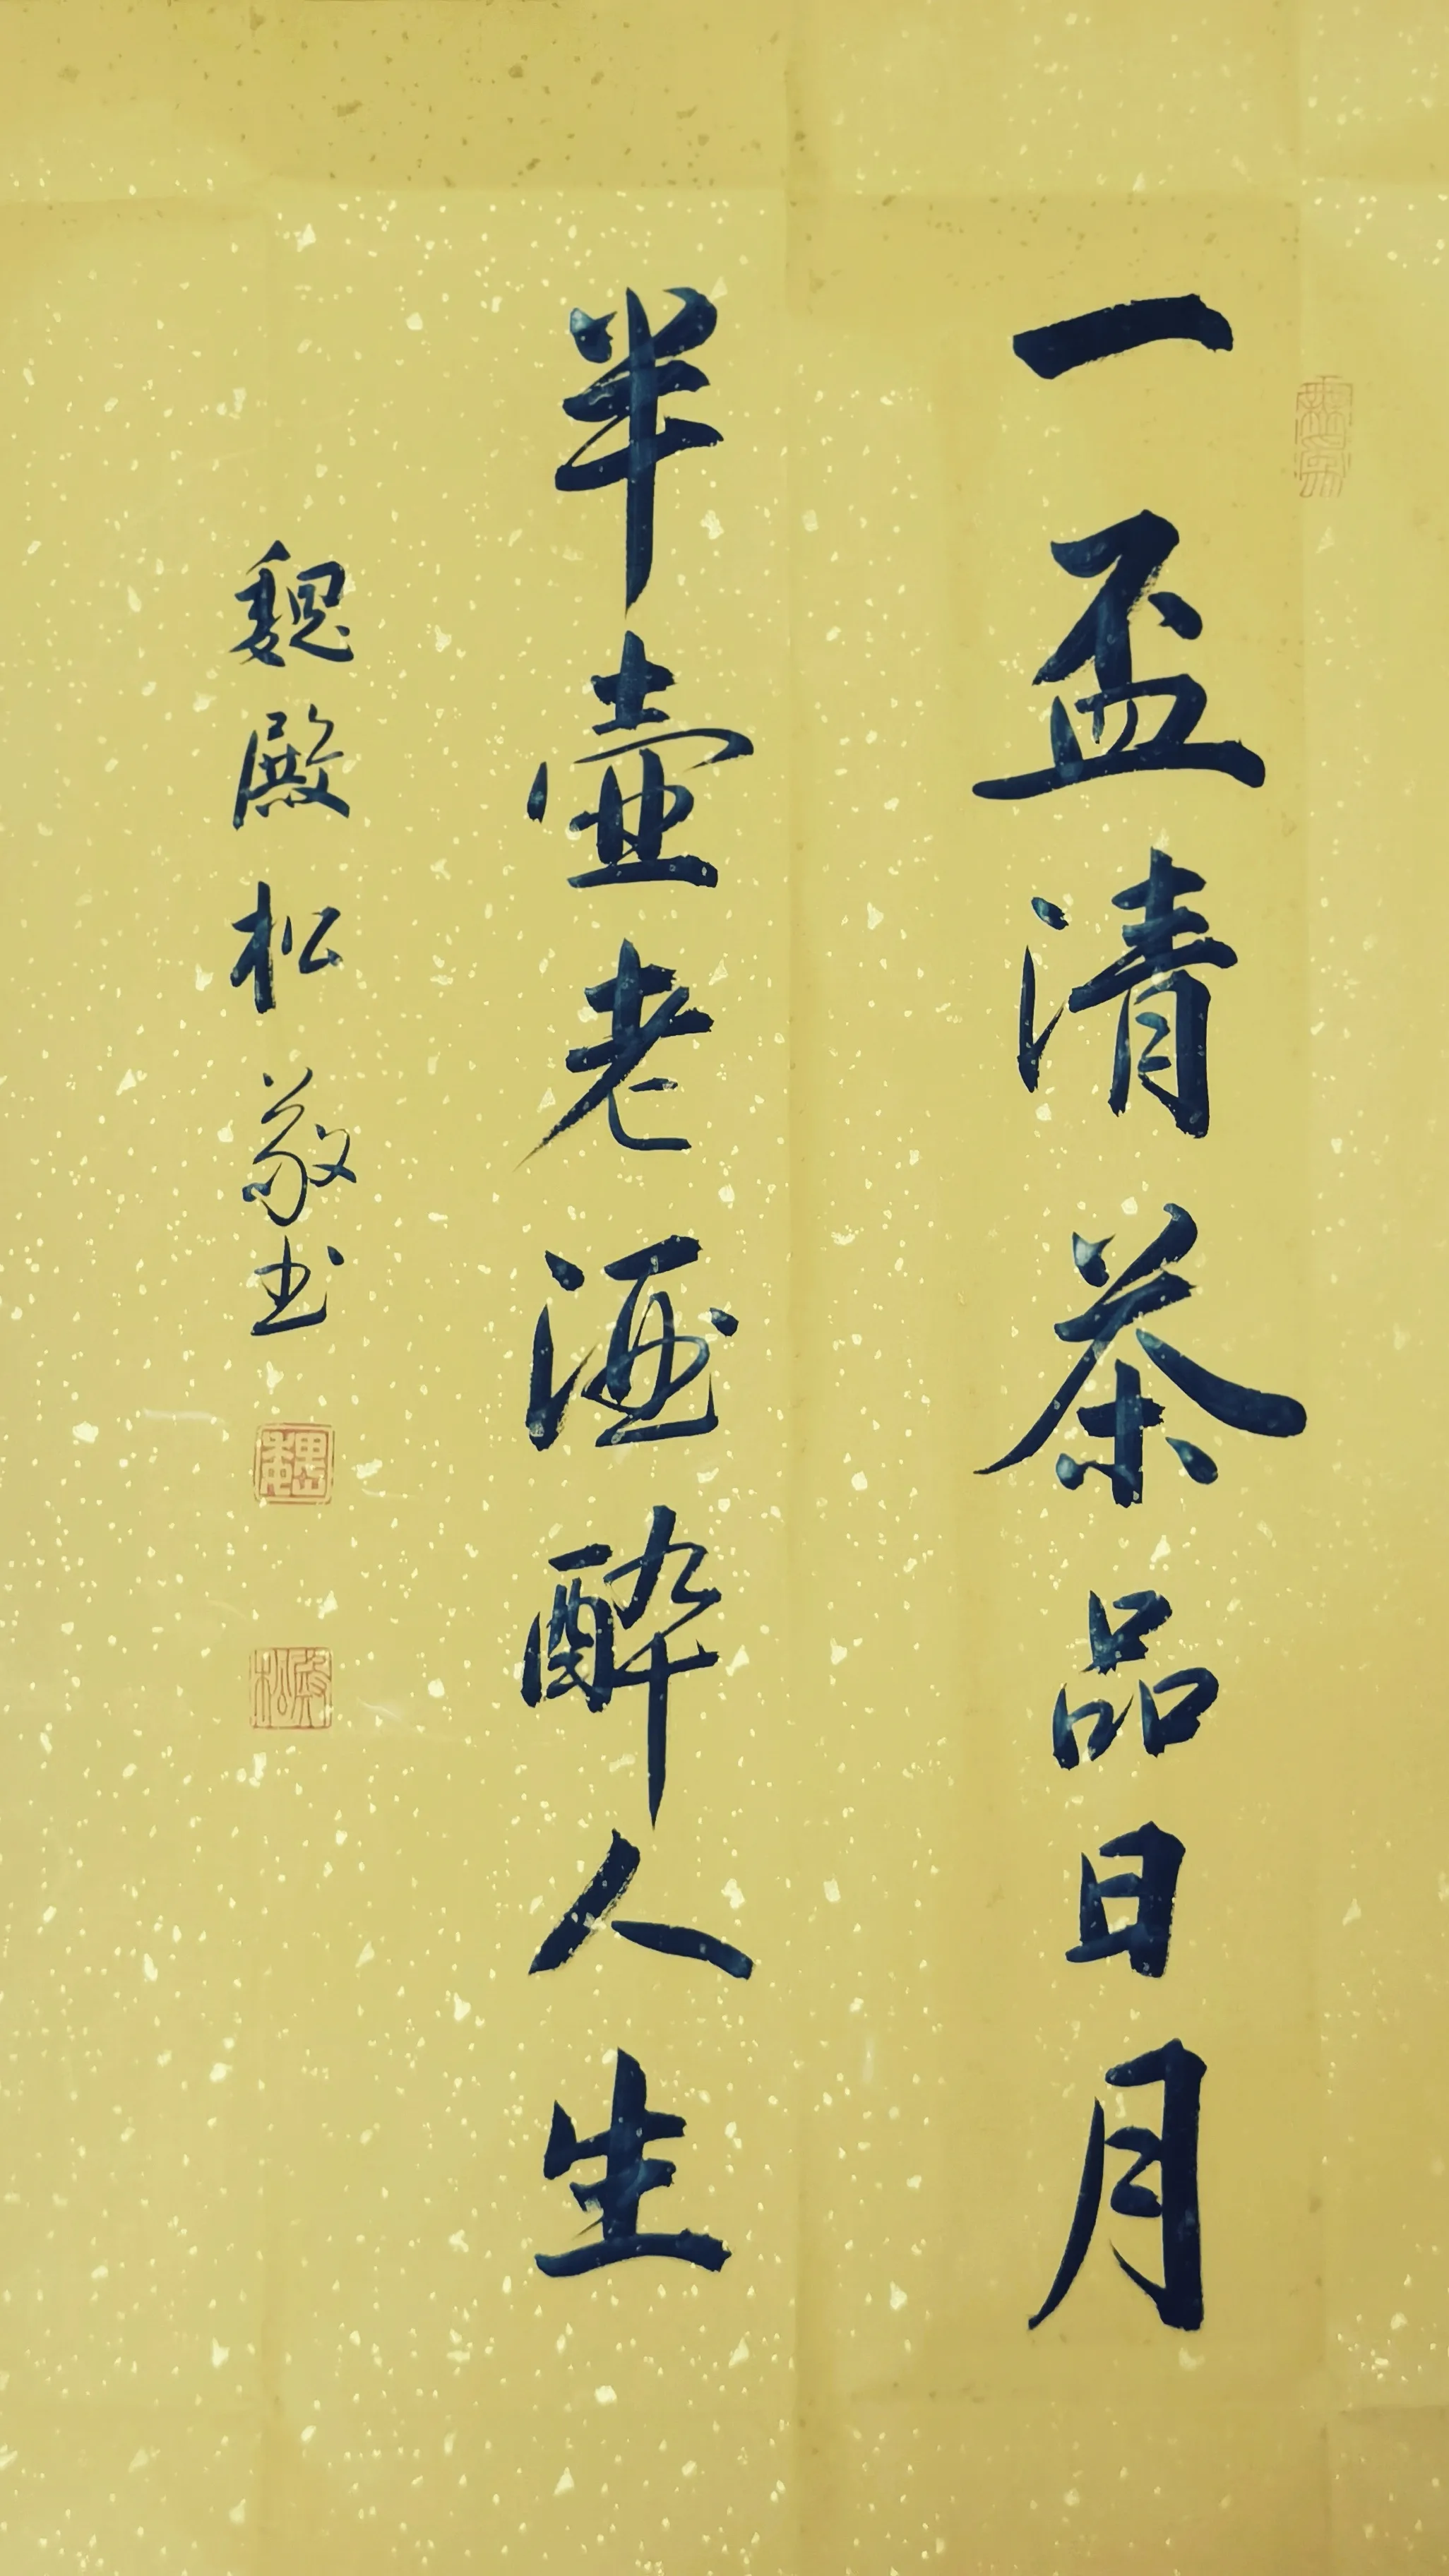 一盃清茶品日月
半壶老酒醉人生
魏殿松敬书
魏
殿松